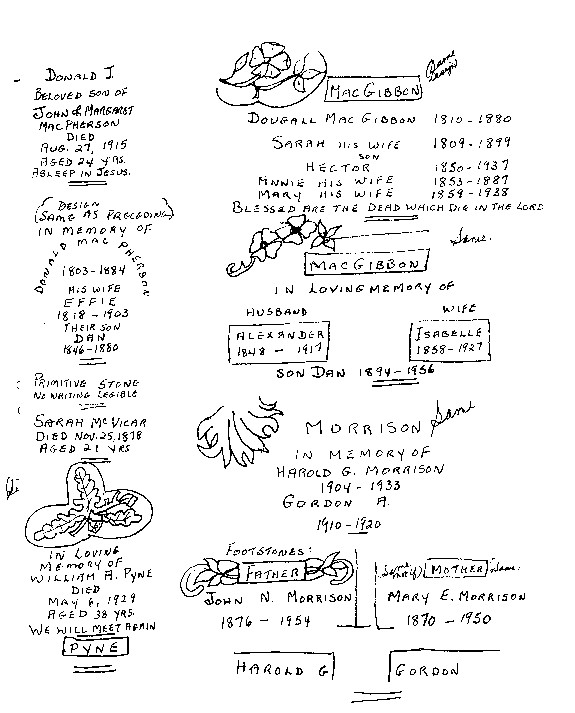 DONALD J.
BELOVED SON OF
JOHN & MARGARET
MACPHERSON
DIED
AUG. 27, 1915
AGED 24 YRS.
ASLEEP IN JESUS.
(DESIGN
SAME AS PRECEDING)
IN MEMORY OF
DONALD MAC PHERSON
1803-1884
HIS WIFE
EFFIE
1818-1903
THEIR SON
DAN
1846-1880
PRIMITIVE STONE
NO WRITING LEGIBLE
SARAH MCVICAR
DIED NOV. 25, 1878
AGED 21 YRS
IN LOVING
MEMORY OF
WILLIAM A. PYNE
DIED
MAY 6, 1929
AGED 38 YRS.
WE WILL MEET AGAIN
PYNE
Same
Design
MACGIBBON
DOUGALL MAC GIBBON 1810-1880
SARAH HIS WIFE 1809-1899
SON
HECTOR 1850-1937
MNNIE HIS WIFE 1853-1887
MARY HIS WIFE 1859-1938
BLESSED ARE THE DEAD WHICH DIE IN THE LORD
Same.
MACGIBBON
IN LOVING MEMORY OF
HUSBAND WIFE
ALEXANDER ISABELLE
1848 - 1917 1858-1927
SON DAN 1894-1956
MORRISON Same
IN MEMORY OF
HAROLD G. MORRISON
1904-1933
GORDON A.
1910-1920
FOOTSTONES:
FATHER MOTHER Same.
JOHN N. MORRISON MARY E. MORRISON
1876 - 1954 1870 - 1950
HAROLD G GORDON